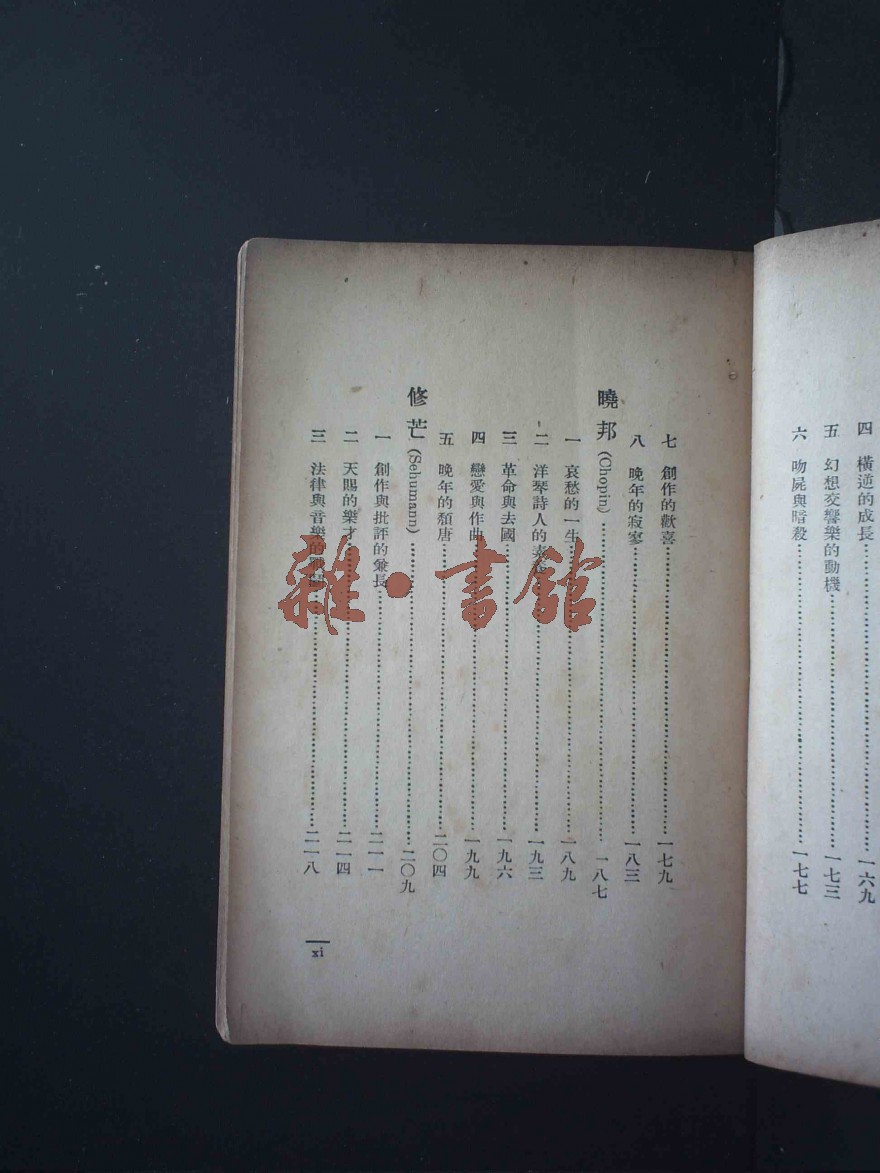 四 橫逆的成長 一六九
五 幻想交響樂的動機 一七三
六 吻屍與暗殺 一七七
七 創作的歡喜 一七九
八 晚年的寂寥 一八三
曉邦 (Chopin) 一八七
一 哀愁的一生 一八九
二 洋琴詩人的素 一九三
三 革命與去國 一九六
四 戀愛與作曲 一九九
五 晚年的頹唐 二〇四
修芒 (Schumann) 二〇九
一 創作與批評的兼長 二一一
二 天賜的樂才 二一四
三 法律與音樂的戰鬭 二一八
xi
雜·書館